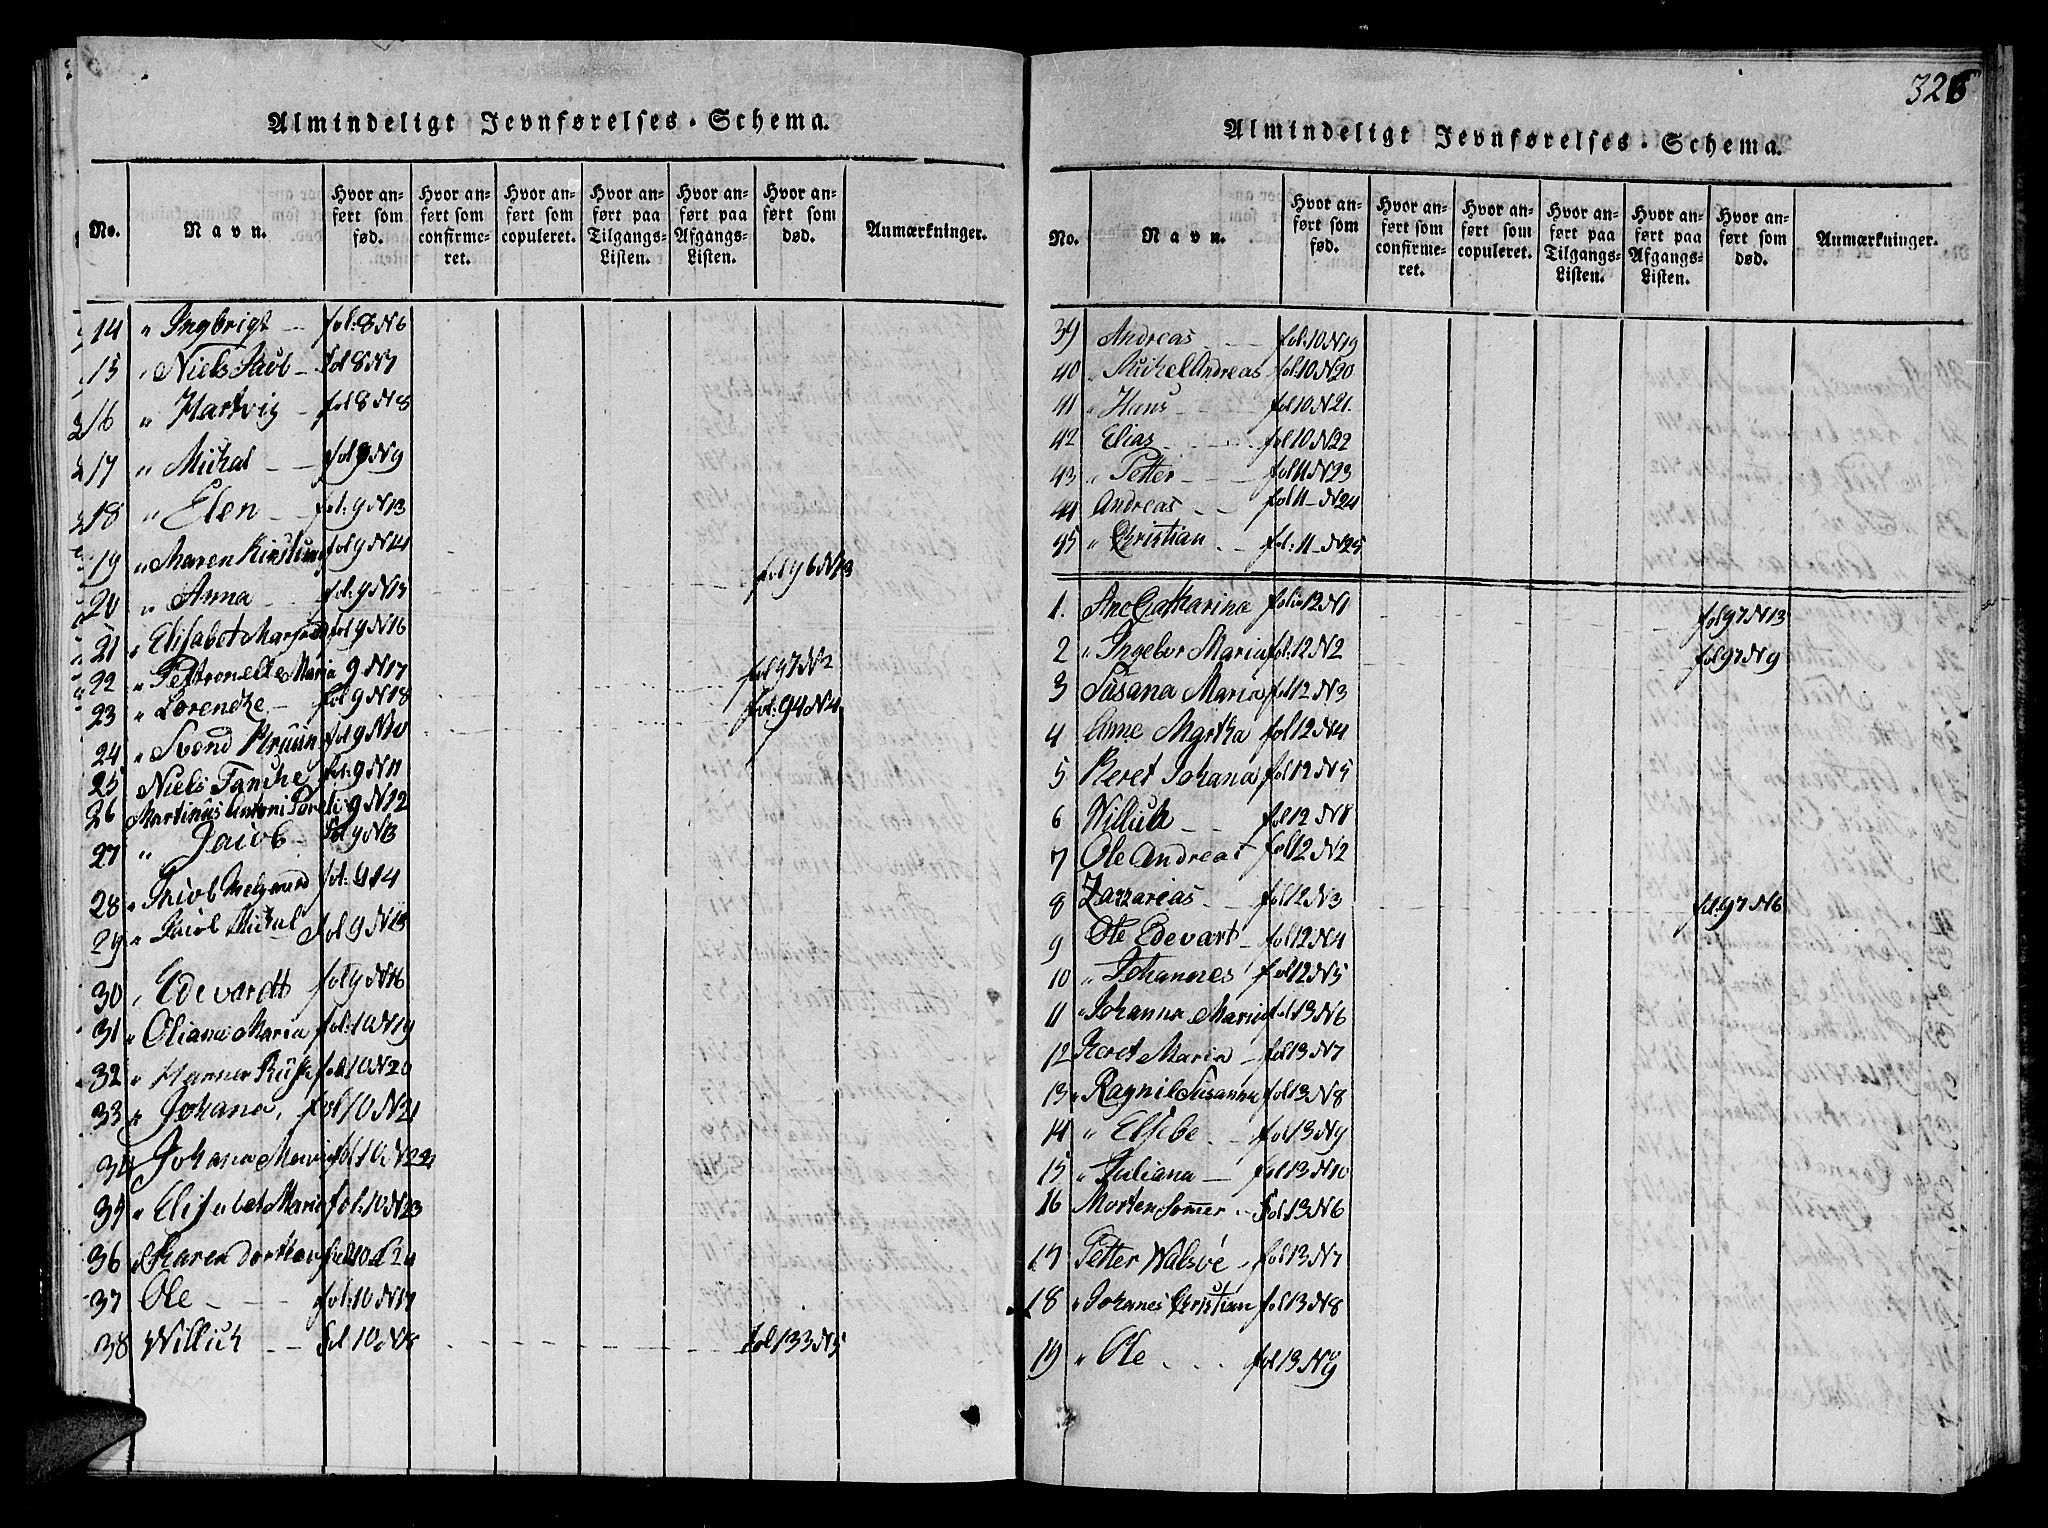 Almindeligt Jevnførelses-Schema.
No. Navn. Hvor anført som fød. Hvor anført som confirmeret. Hvor anført som copuleret. Hvor anført paa Tilgangs-Listen. Hvor anført paa Afgangs-Listen. Hvor anført som død. Anmærkninger.
14 " Ingbrigt fol:8 N6
15 " Niels Jacob fol 8 N7
16 " Hartvig fol 8 N8
17 " Michal fol 9 N9
18 " Elen fol: 9 N13
19 " Maren Kirstine fol 9 N14
20 " Anna fol: 9 N15 fol 96 N13
21 " Elisabet Margred fol 9 N16
22 " Pettronelle Maria 9 N17 fol 97 N2
23 " Lorendze fol 9 N18 fol: 94 N4
24 " Svend Bruun fol 9 N10
25 Niels Tanche fol: 9 N11
26 Martinus Antoni 9 N12
27 " Jacob fol 9 N13
28 " Jacob fol: 9 14
29 " Jacob Michal fol 9 N15
30 " Edevardt fol 9 N16
31 " Oliana Maria fol: 10 N19
32 " fol 10 N20
33 " Johana, fol 10 N21
34 Johana Maria fol 10 N22
35 " Elisabet Maria fol: 10 N23
36 " Karen Dorthea fol 10 24
37 Ole fol: 10 N17
38 Willich fol 10 N8 fol 133 N5
326
Almindeligt Jevnførelses-Schema.
No. Navn. Hvor anført som fød. Hvor anført som confirmeret. Hvor anført som copuleret. Hvor anført paa Tilgangs-Listen. Hvor anført paa Afgangs-Listen. Hvor anført som død. Anmærkninger.
39 Andreas fol: 10 N19
40 " Michel Andreas fol: 10 N20
41 " Hans fol 10 N21.
42 Elias fol 10 N22
43 " Petter fol 11 N23
44 Andreas fol 11 N24
45 " Christian fol: 11 N25
1. Ane Catharina folio 12 N1 fol 97 N13
2 " Ingebor Maria fol: 12 N2 fol 97 N9
3 Susana Maria fol 12 N3
4 Anne Martha fol 12 N4
5 Beret Johana fol 12 N5
6 Willich fol 12 N1
7 Ole Andreas fol 12 N2
8 Zazzarias fol 12 N3 fol 97 N6
9 Ole Edevart fol 12 N4
10 " Johannes fol 12 N5
11 " Johanna Maria fol 13 N6
12 Beret Maria fol 13 N7
13 " Ragnil Susanna fol 13 N8
14 " Elsebe fol 13 N9
15 " Juliana fol 13 N10
16 Morten Sommer fol 13 N6
17 Petter Walsøe fol 13 N7
18 " Johanes Christian fol 13 N8
19 " Ole fol 13 N9